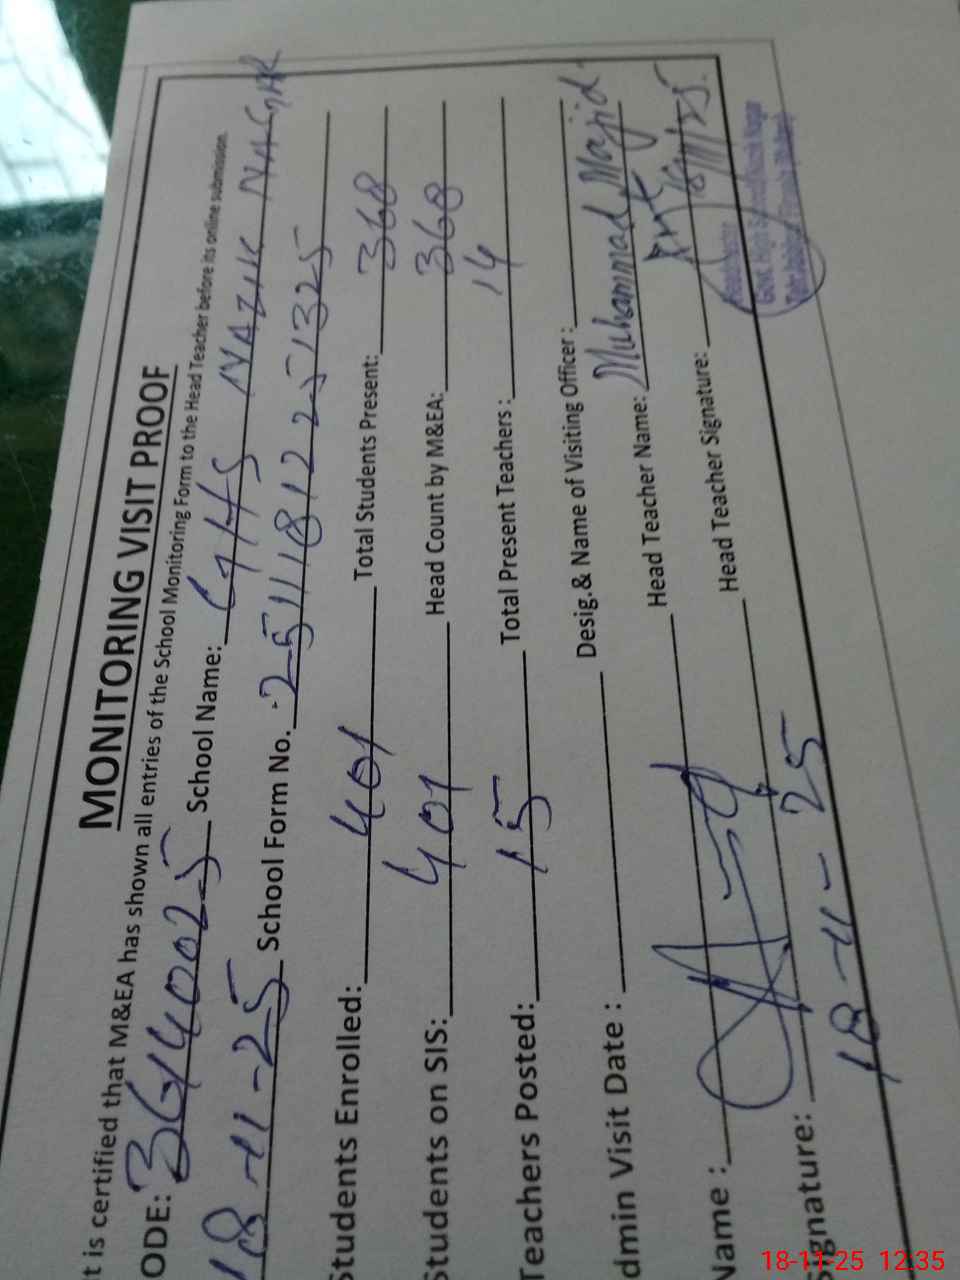 MONITORING VISIT PROOF
t is certified that M&EA has shown all entries of the School Monitoring Form to the Head Teacher before its online submission.
ODE: 36140025 School Name: GHS NAZIK NAGAR
18-11-25 School Form No. 251118122251325
Students Enrolled: 401 Total Students Present: 368
Students on SIS: 401 Head Count by M&EA: 368
Teachers Posted: 15 Total Present Teachers: 14
dmin Visit Date: Desig.& Name of Visiting Officer:
Name: Head Teacher Name: Muhammad Majid
Signature: Head Teacher Signature:
18-11-25 18/11/25
Govt. High School
18-11-25 12.35